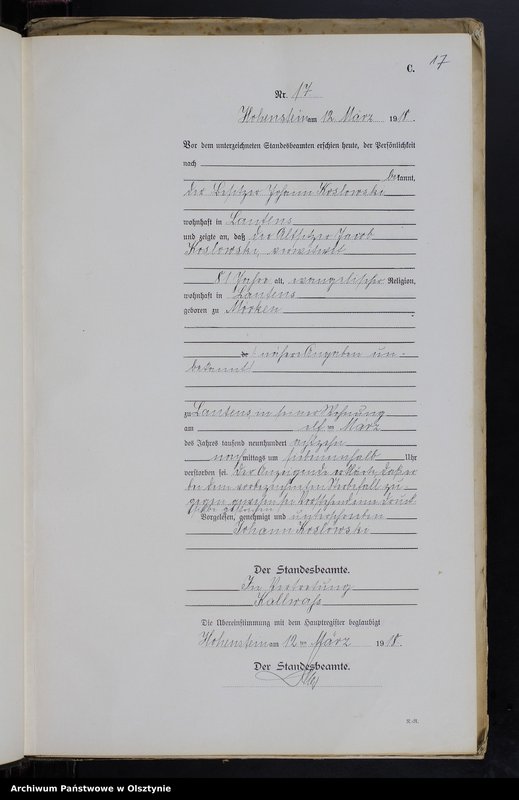 C.
17
Nr. 17
Hohenstein am 12 März 1918.
Vor dem unterzeichneten Standesbeamten erschien heute, der Persönlichkeit
nach
bekannt,
der Besitzer Johann Koslowski
wohnhaft in Lautens
und zeigte an, daß der Altsitzer Jacob
Koslowski, verwitwet
81 Jahre alt, evangelischer Religion,
wohnhaft in Lautens
geboren zu Merken
nähere Angaben un-
bekannt
zu Lautens in seiner Wohnung
am elften März
des Jahres tausend neunhundert achtzehn
nachmittags um siebeneinhalb Uhr
verstorben sei. Der Anzeigende erklärte, daß er
bei dem vorbezeichneten Sterbefall zu-
gegen gewesen sei. Vorstehend ein Druck-
wort gestrichen.
Vorgelesen, genehmigt und unterschrieben
Johann Koslowski
Der Standesbeamte.
In Vertretung
Kallwaß
Die Übereinstimmung mit dem Hauptregister beglaubigt
Hohenstein am 12 ten März 1918.
Der Standesbeamte.
R.-R.
Archiwum Państwowe w Olsztynie